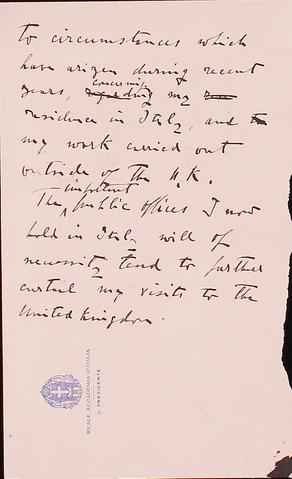 to circumstances which
have arizen during recent
concerning
years, regarding my
residence in Italy, and the
my work carried out
outside of the U.K.
important
The public offices I now
hold in Italy will of
necessity tend to further
curtail my visits to the
United Kingdom.
REALE ACCADEMIA D'ITALIA
IL PRESIDENTE